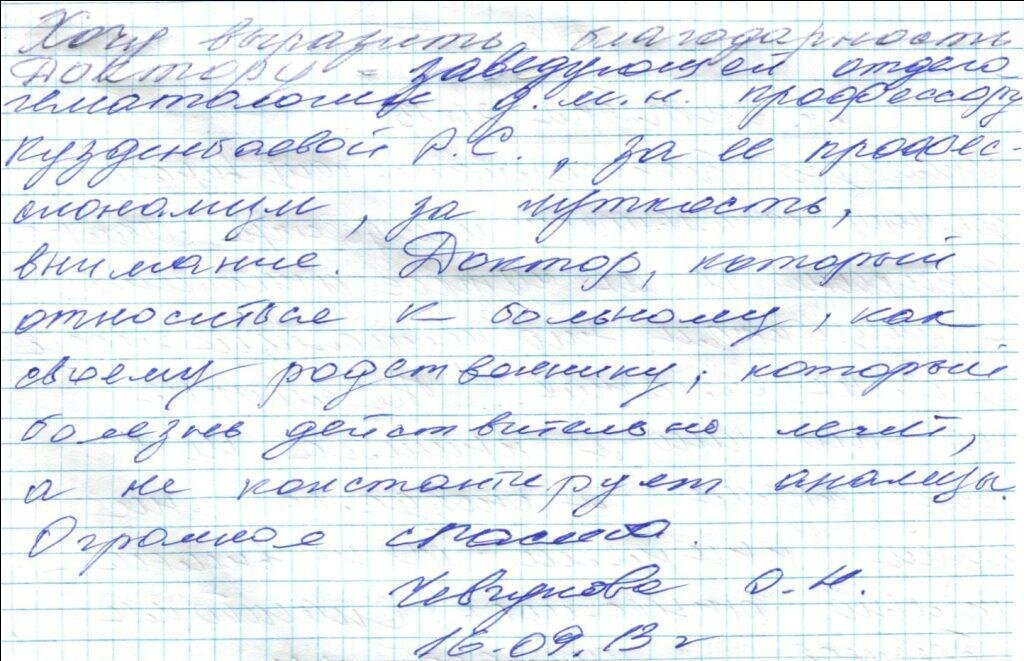 Хочу выразить благодарность
Доктору - заведующей отдела
гематологии д.м.н. профессору
Кузденбаевой Р.С., за ее профес-
сионализм, за чуткость,
внимание. Доктор, который
относиться к больному, как
своему родственнику, который
болезнь действительно лечит,
а не константирует анализы.
Огромное спасибо.
О.Н.
16.09.13 г